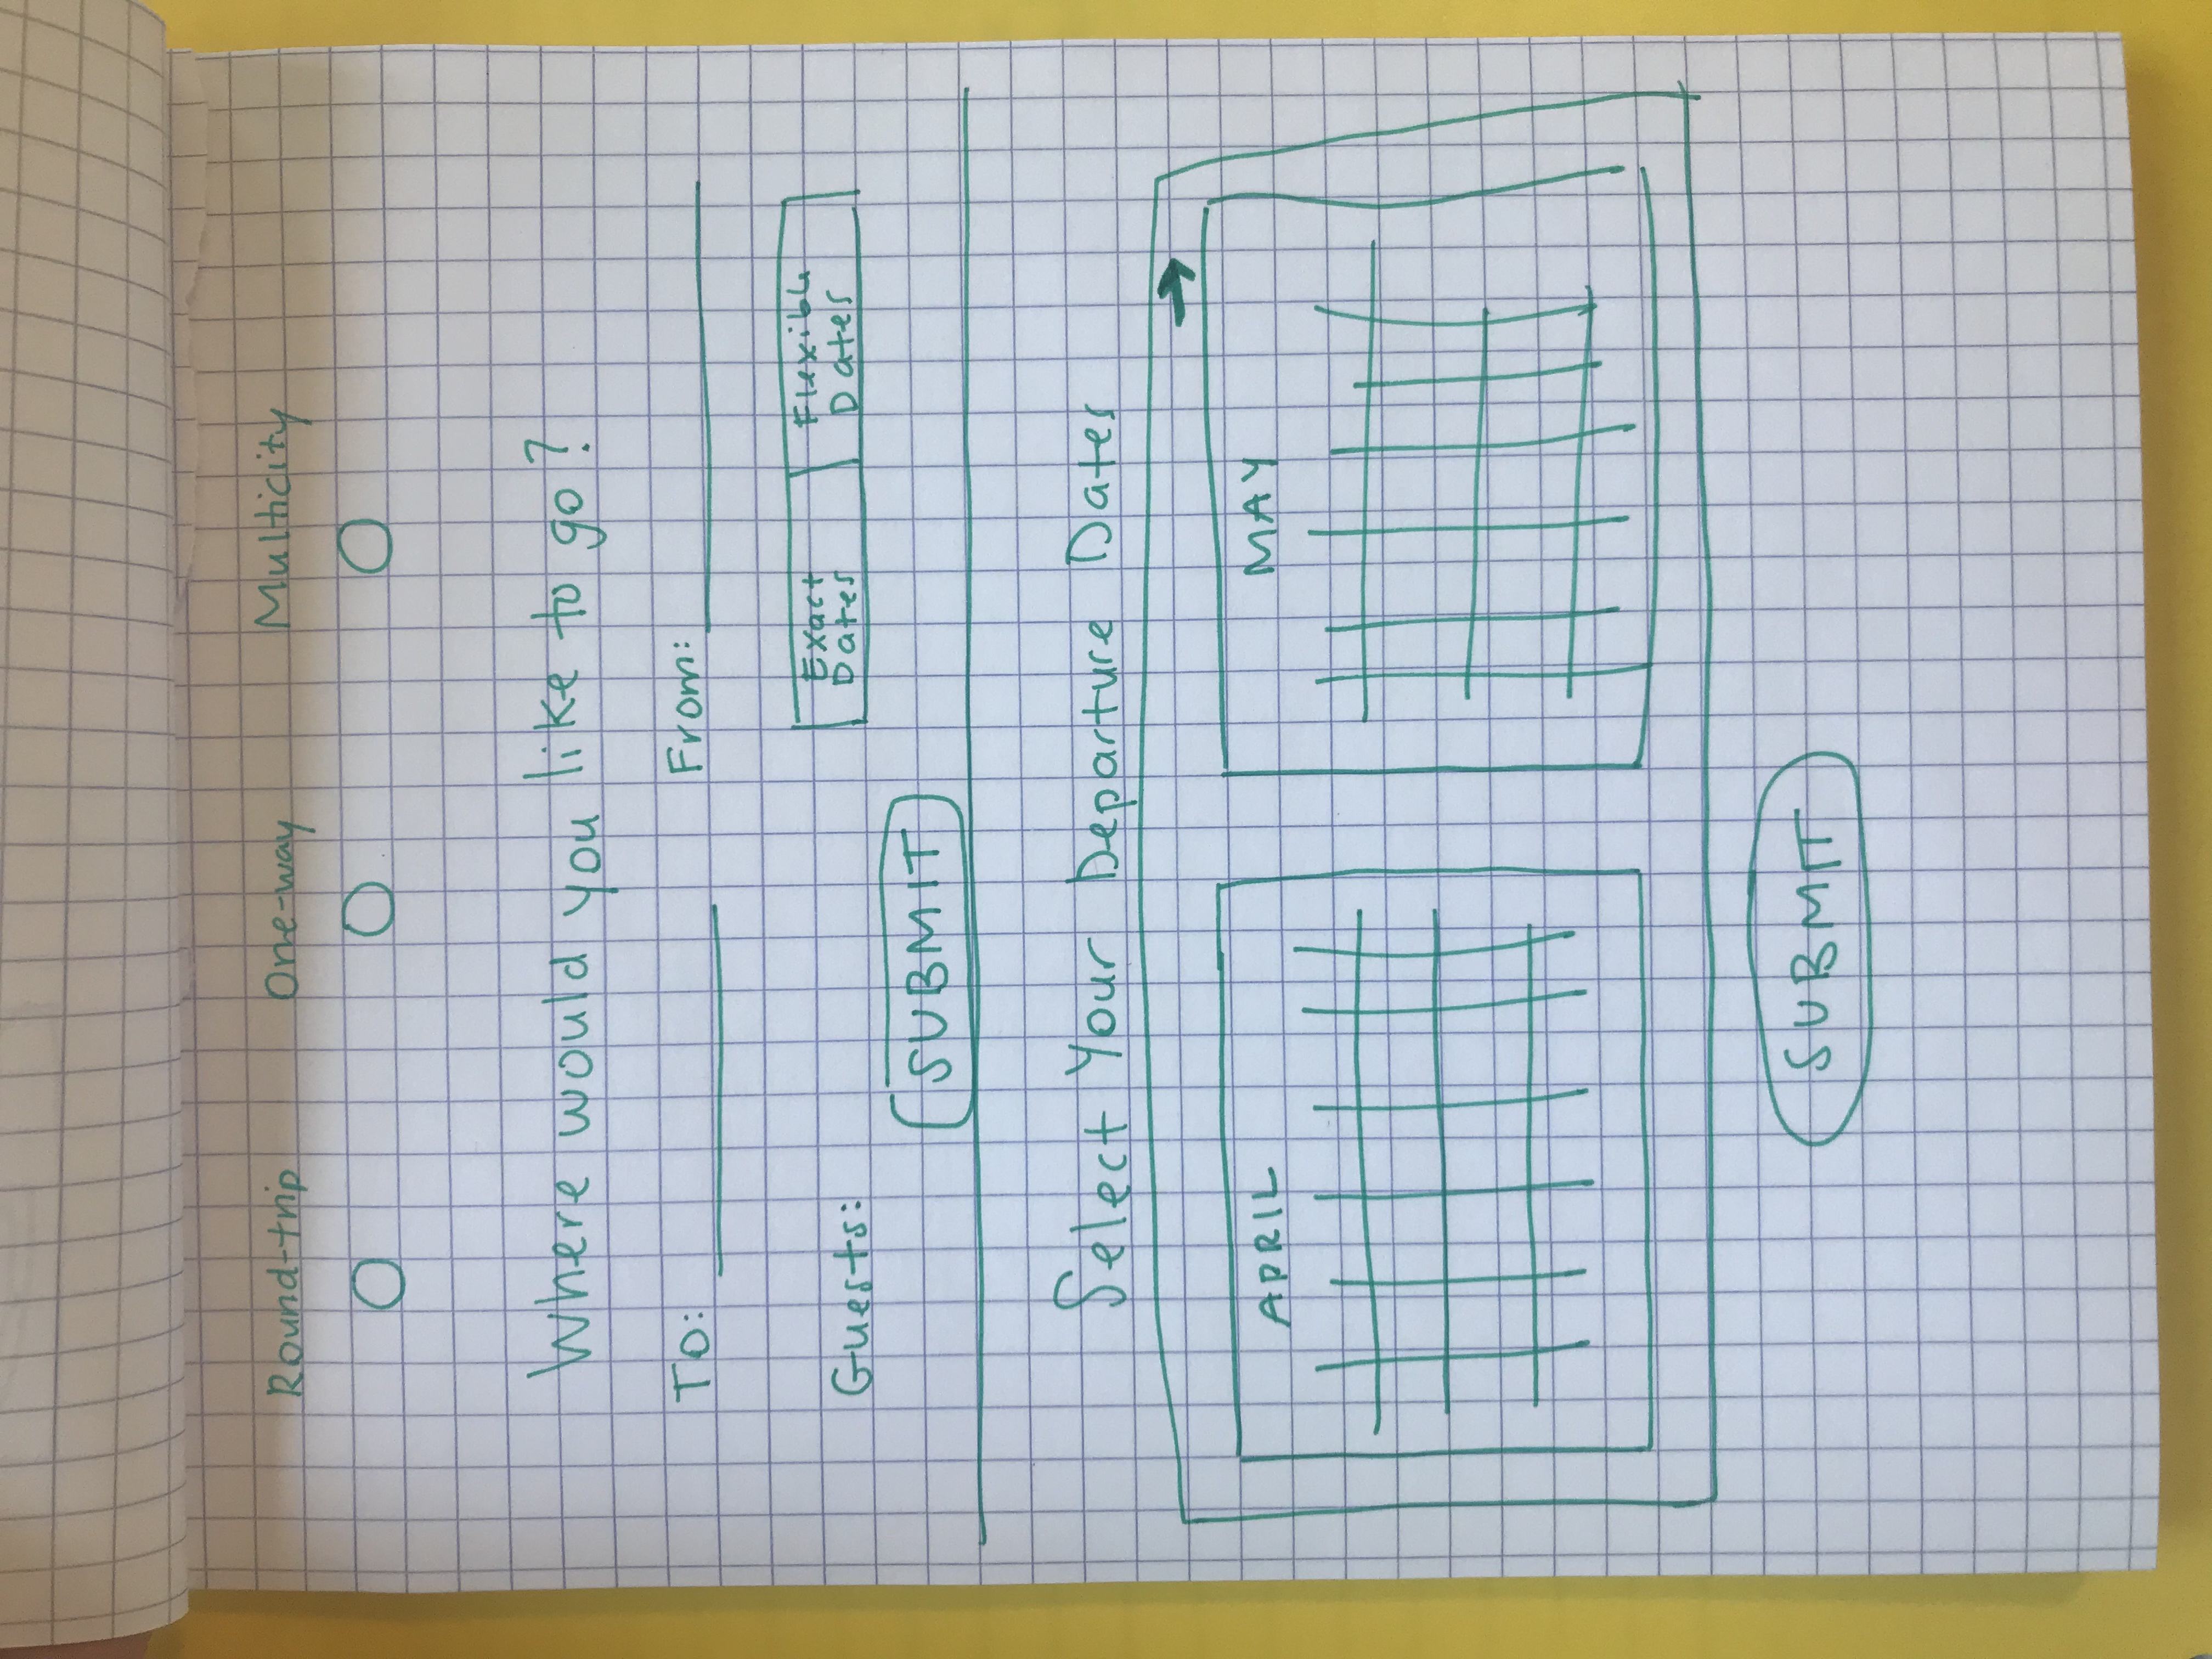 Round-trip One-way Multicity
Where would you like to go?
To: From:
Exact Flexible
Dates Dates
Guests:
SUBMIT
Select Your Departure Dates
APRIL MAY
SUBMIT